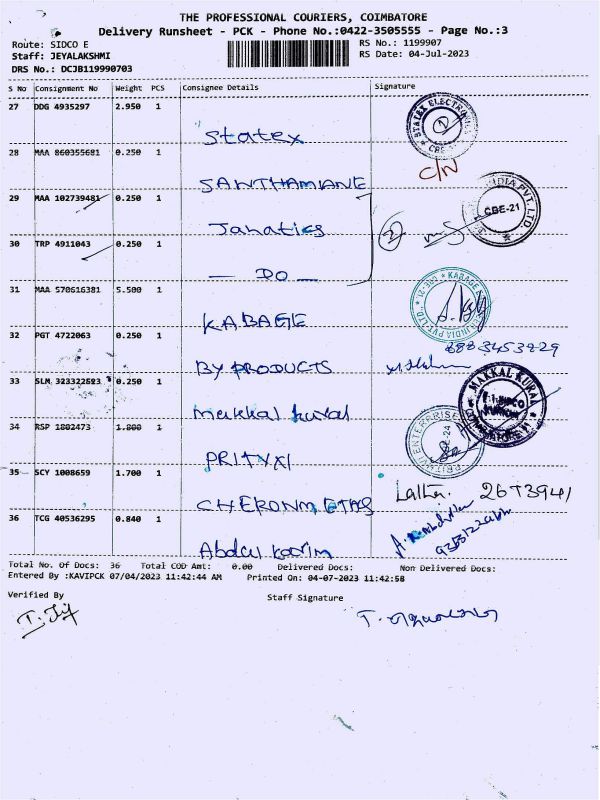 THE PROFESSIONAL COURIERS, COIMBATORE
Delivery Runsheet - PCK - Phone No.:0422-3505555 - Page No.:3
Route: SIDCO E
RS No.: 1199907
Staff: JEYALAKSHMI
RS Date: 04-Jul-2023
DRS No.: DCJB119990703
S No Consignment No Weight PCS Consignee Details Signature
27 DDG 4935297 2.950 1
Statex
STATEX ELECTRONICS
28 MAA 860355681 0.250 1
SANTHAMIANE
C/N
29 MAA 102739481 0.250 1
Janatics
INDIA PVT. LTD.
CBE-21
2
30 TRP 4911043 0.250 1
— DO —
31 MAA 570616381 5.500 1
KABAGE
32 PGT 4722063 0.250 1
BY PRODUCTS
8883453929
33 SLM 323322523 0.250 1
Makkal kural
MAKKAL KURAL
34 RSP 1802473 1.800 1
PRITVXI
35 SCY 1008659 1.700 1
CHERONMETAS
Latha. 26T3941
36 TCG 40536295 0.840 1
Abdul karim
Total No. Of Docs: 36 Total COD Amt: 0.00 Delivered Docs: Non Delivered Docs:
Entered By :KAVIPCK 07/04/2023 11:42:44 AM Printed On: 04-07-2023 11:42:58
Verified By
Staff Signature